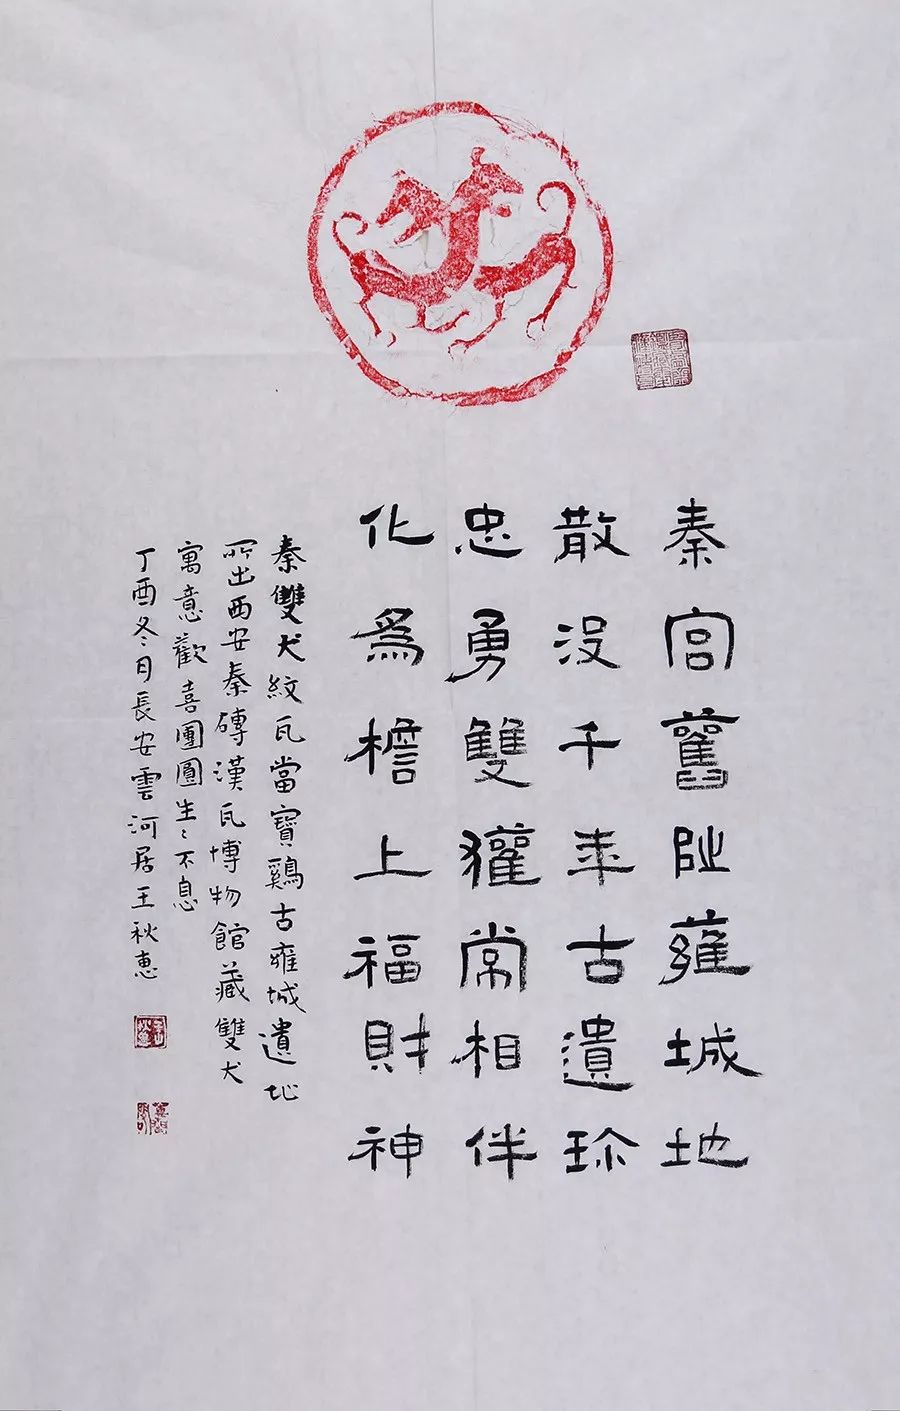 秦宫舊阯雍城地
散没千年古遺珍
忠勇雙獾常相伴
化為檐上福財神
秦雙犬紋瓦當寶鷄古雍城遺址
所出西安秦磚漢瓦博物館藏雙犬
寓意歡喜團圓生〻不息
丁酉冬日長安雲河居王秋惠